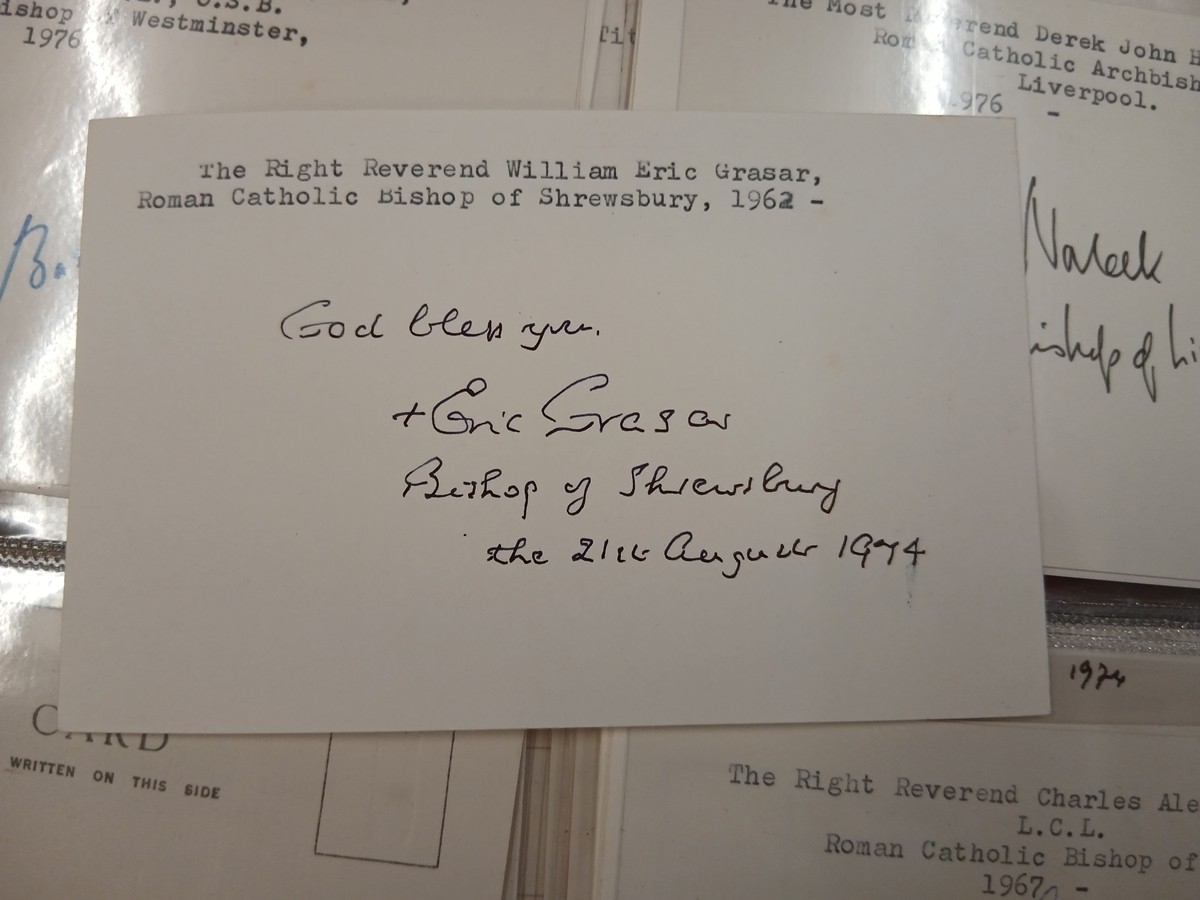 O.S.B.
Westminster,
1976
The Most Reverend Derek John
Roman Catholic
Liverpool.
1976 -
The Right Reverend William Eric Grasar,
Roman Catholic Bishop of Shrewsbury, 1962 -
God bless you.
+ Eric Grasar
Bishop of Shrewsbury
the 21st August 1974
1974
CARD
WRITTEN ON THIS SIDE
The Right Reverend Charles
L.C.L.
Roman Catholic Bishop of
1967 -